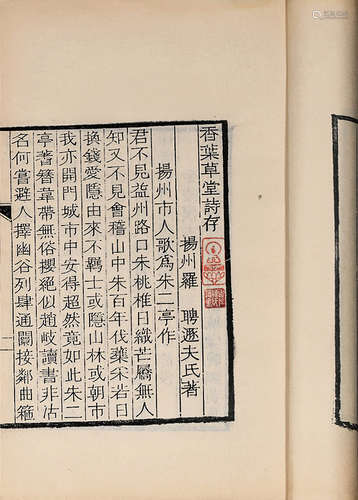 香葉草堂詩存
揚州羅 聘遯夫氏著
揚州市人歌爲朱二亭作
君不見益州路口朱桃椎日織芒屩無人
知又不見會稽山中朱百年伐采若日
換錢愛隱由來不羈士或隱山林或朝市
我亦開門城市中安得超然竟如此朱二
亭蓍簪韋帶無俗纓絕似趙岐讀書非沽
名何嘗避人擇幽谷列肆通闤接鄰曲箍